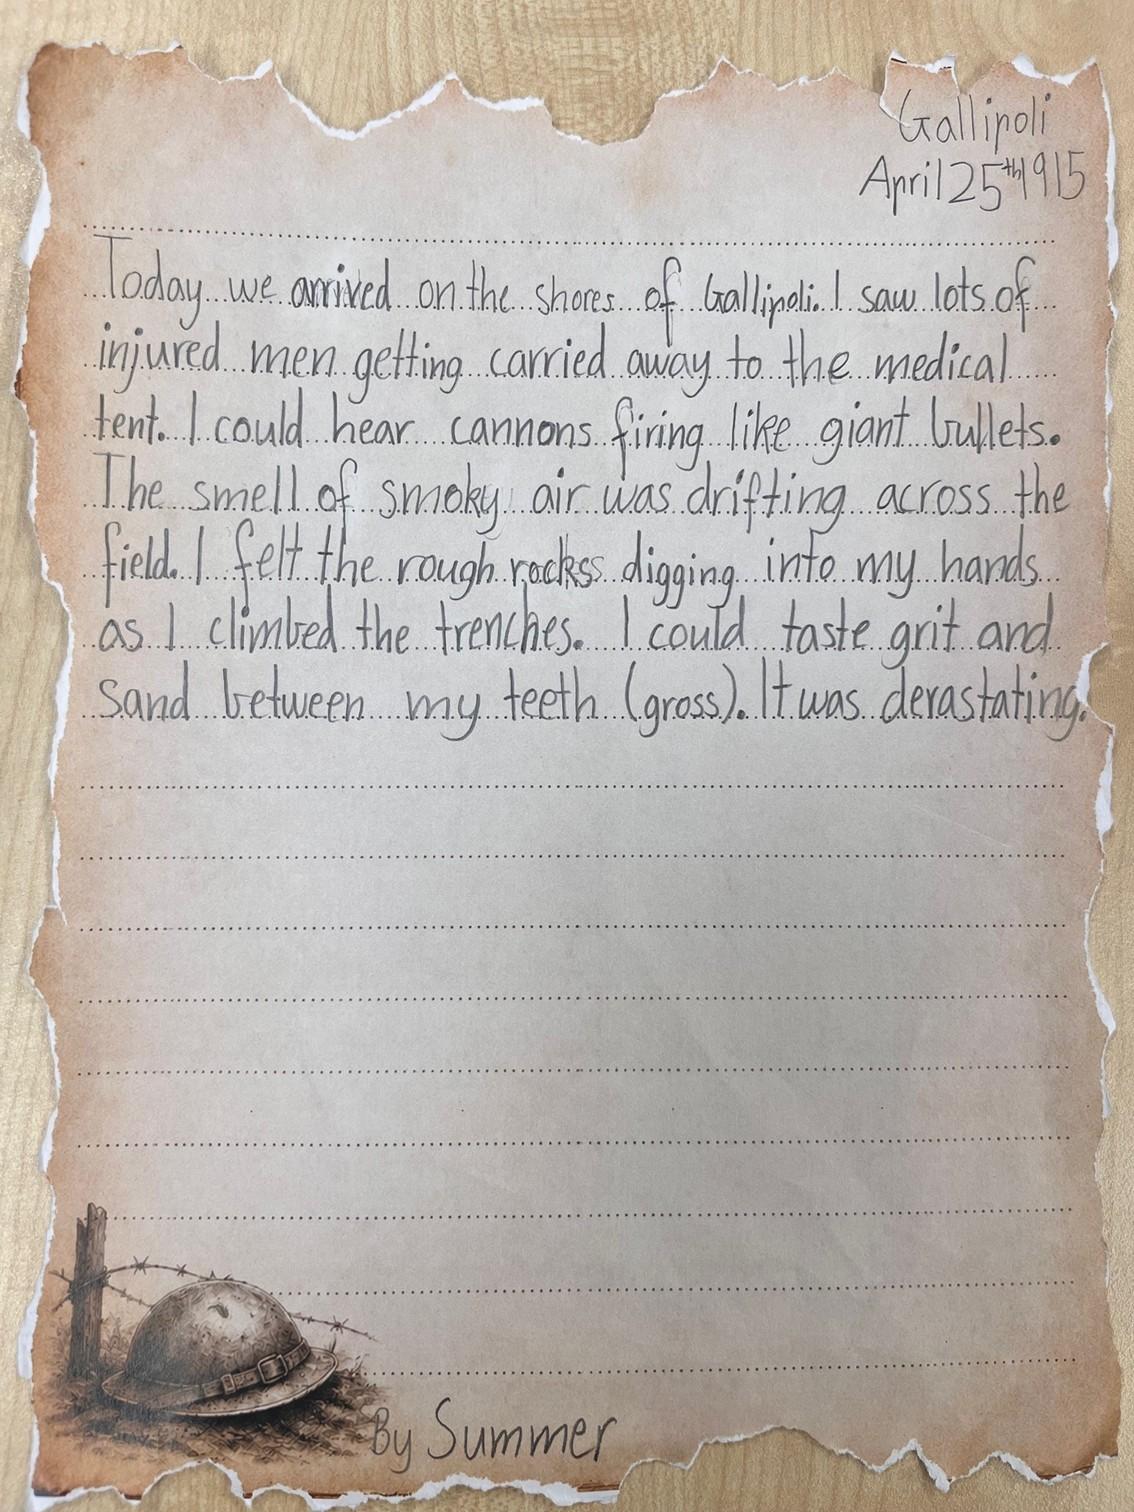 Gallipoli
April 25th 1915
Today we arrived on the shores of Gallipoli. I saw lots of
injured men getting carried away to the medical
tent. I could hear cannons firing like giant bullets.
The smell of smoky air was drifting across the
field. I felt the rough rocks digging into my hands
as I climbed the trenches. I could taste grit and
sand between my teeth (gross). It was devastating.
By Summer